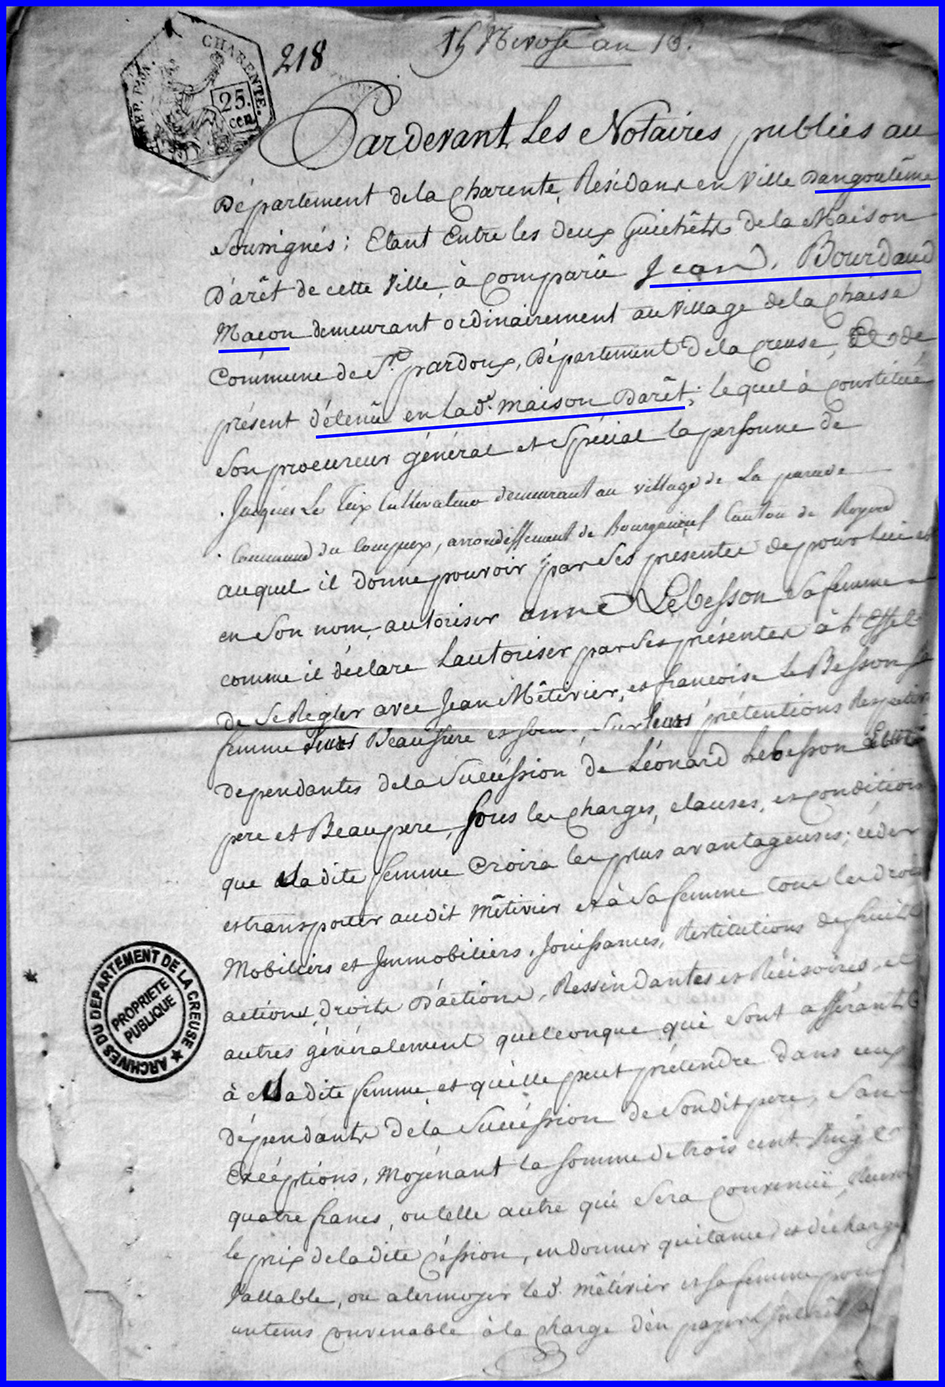 REP. FRA. CHARENTE.
25. cen
218
15 Nivose an 13.
Pardevant Les Notaires publics au
Département dela Charente, Residant en Ville Dangoulême
soussignés; Etant Entre les deux Guichêts de la Maison
D'arêt de cette Ville, à comparû Jean Bourdaud
Maçon demeurant ordinairement au Village de la Chaise
Commune de St. pardoux, Département De la Creuse, Et de
présent détenû en Lad.e maison Darêt; lequel à constitué
son procureur général et spécial la personne de
Jacques Le Teix Cultivateur demeurant au village de La parade
Commune du Compeix, arrondissement de Bourganeuf Canton de Royere
auquel il donne pouvoir par ses presentes de pour lui et
en son nom, autoriser anne Lebesson sa femme
comme il déclare Lautoriser par ses présentes à l'Effet
de se Regler avec Jean Mêtivier, et francoise Le Besson sa
femme leurs Beaufrere et soeur, sur leurs prétentions Respectives
dependantes dela Succéssion de Léonard Lebesson
pere et Beaupere, sous les Charges, clauses, et conditions
que sa dite femme Croira les plus avantageuses; céder
et transporter audit Mêtivier et à sa femme tous les droits
Mobiliers et Immobiliers, Jouissances, Restitutions de fruits
actions, droits D'actions, Ressindantes et Récisoires, et
autres généralement quelconque qui sont afférants
à sa dite femme, et qu'elle peut prétendre dans ceux
dépendants dela Succéssion de Sondit pere, Sans
Excéptions, Moyénant la somme de trois cent Vingt
quatre francs, ou telle autre qui Sera Convenuë,
le prix de la dite Céssion, en donner quitance et décharge
Vallable, ou atermoyer led. Mêtivier et sa femme pour
un tems convenable à la charge d'en payer l'intérêt
ARCHIVES DU DEPARTEMENT DE LA CREUSE
PROPRIETE
PUBLIQUE